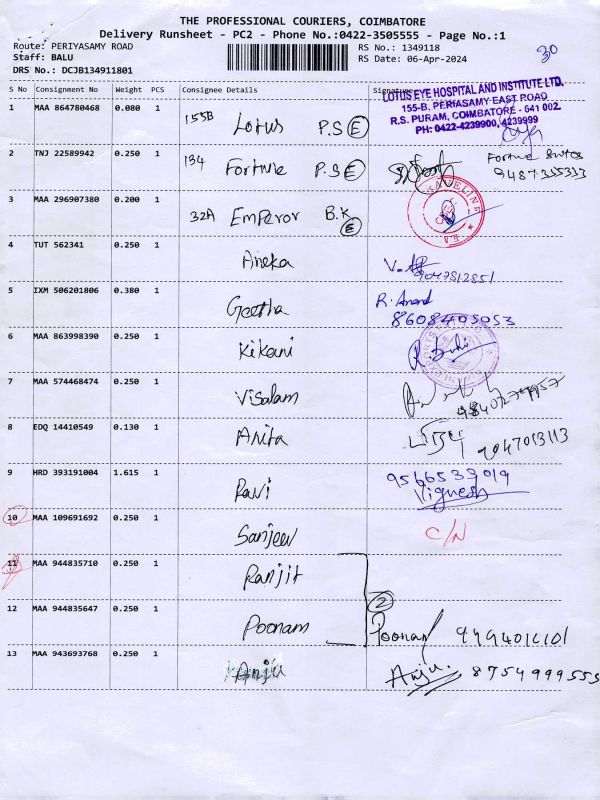 THE PROFESSIONAL COURIERS, COIMBATORE
Delivery Runsheet - PC2 - Phone No.:0422-3505555 - Page No.:1
Route: PERIYASAMY ROAD
Staff: BALU
DRS No.: DCJB134911801
RS No.: 1349118
RS Date: 06-Apr-2024
30
S No Consignment No Weight PCS Consignee Details Signature
LOTUS EYE HOSPITAL AND INSTITUTE LTD.
155-B, PERIASAMY EAST ROAD
R.S. PURAM, COIMBATORE - 641 002.
PH: 0422-4239900, 4239999
1 MAA 864780468 0.080 1 155B Lotus P.S (E)
2 TNJ 22589942 0.250 1 134 Fortune P.S (E)
3 MAA 296907380 0.200 1 32A Emperor B.K (E)
4 TUT 562341 0.250 1 Aneka
5 IXM 506201806 0.380 1 Geetha R. Anand
8608405053
6 MAA 863998390 0.250 1 Kikani
7 MAA 574468474 0.250 1 Visalam
8 EDQ 14410549 0.130 1 Anita
9 HRD 393191004 1.615 1 Ravi 9566533019
Vignesh
10 MAA 109691692 0.250 1 Sanjeev C/N
11 MAA 944835710 0.250 1 Ranjit
2
12 MAA 944835647 0.250 1 Poonam Poonam
13 MAA 943693768 0.250 1 Anju Anju. 8754999555